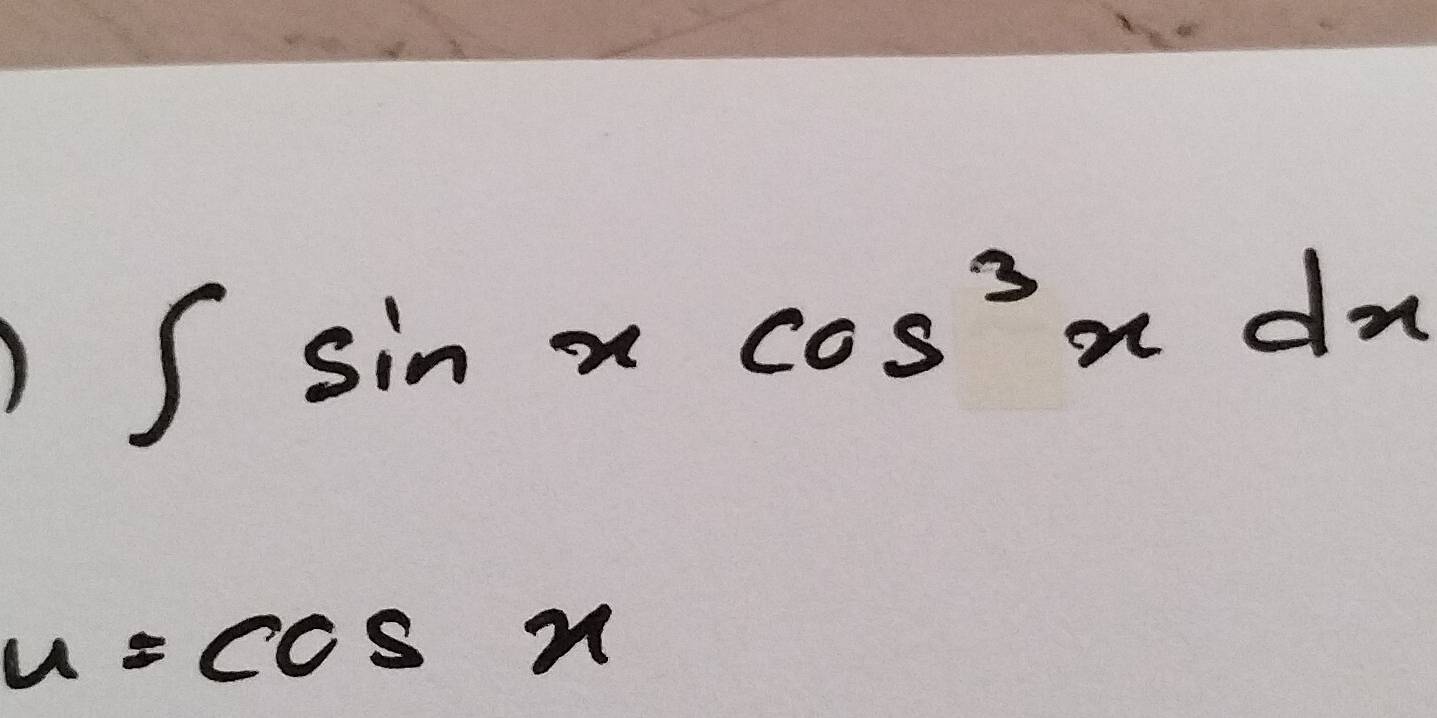 ) ∫ sin x cos³ x dx
u = cos x